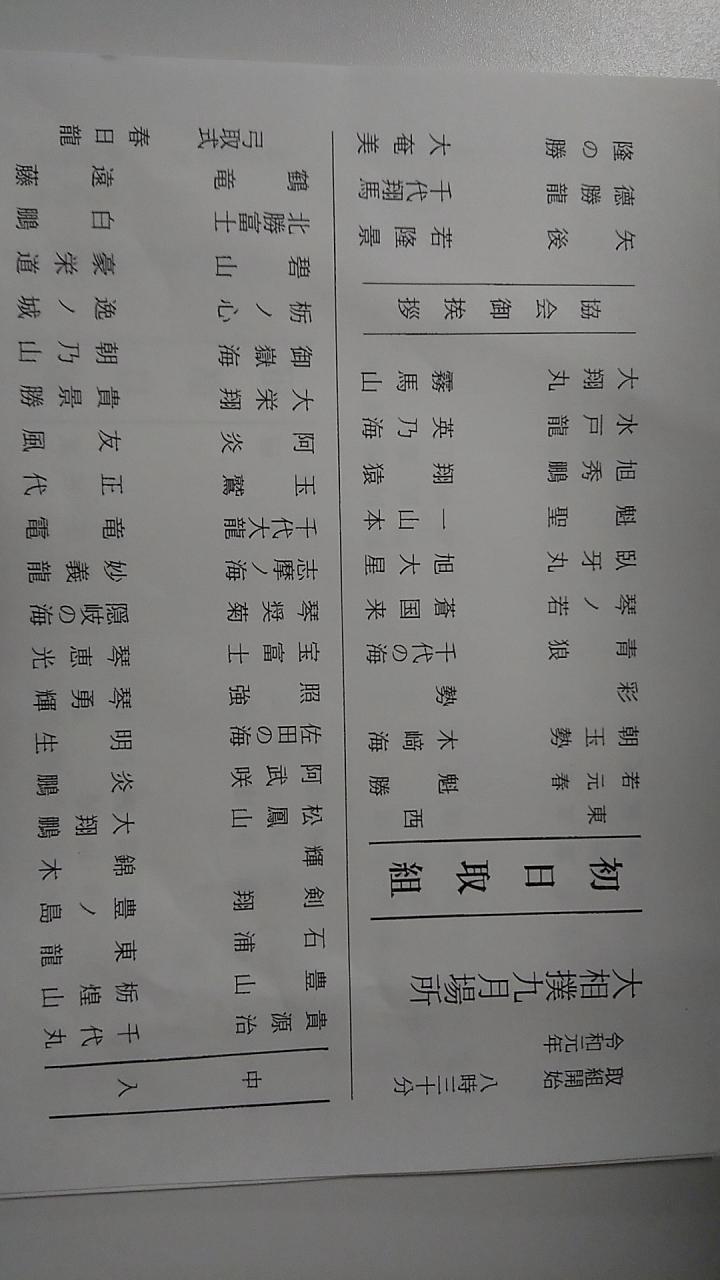 取組開始 八時三十分
令和元年
大相撲九月場所
初日取組
東 西
若元春 魁勝
朝玉勢 木﨑海
彩 勢
青狼 千代の海
琴ノ若 蒼国来
臥牙丸 旭大星
魁聖 一山本
旭秀鵬 翔猿
水戸龍 英乃海
大翔丸 霧馬山
協会御挨拶
矢後 若隆景
徳勝龍 千代翔馬
隆の勝 大奄美
中入
貴源治 千代丸
豊山 栃煌山
石浦 東龍
剣翔 豊ノ島
輝 錦木
松鳳山 大翔鵬
阿武咲 炎鵬
佐田の海 明生
照強 琴勇輝
宝富士 琴恵光
琴奨菊 隠岐の海
志摩ノ海 妙義龍
千代大龍 竜電
玉鷲 正代
阿炎 友風
大栄翔 貴景勝
御嶽海 朝乃山
栃ノ心 逸ノ城
碧山 豪栄道
北勝富士 白鵬
鶴竜 遠藤
弓取式 春日龍